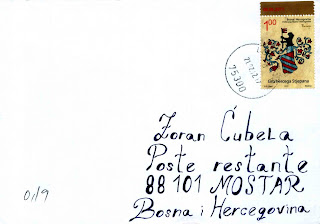 1,00
75300
Zoran Ćubela
Poste restante
88 101 MOSTAR
Bosna i Hercegovina
0119